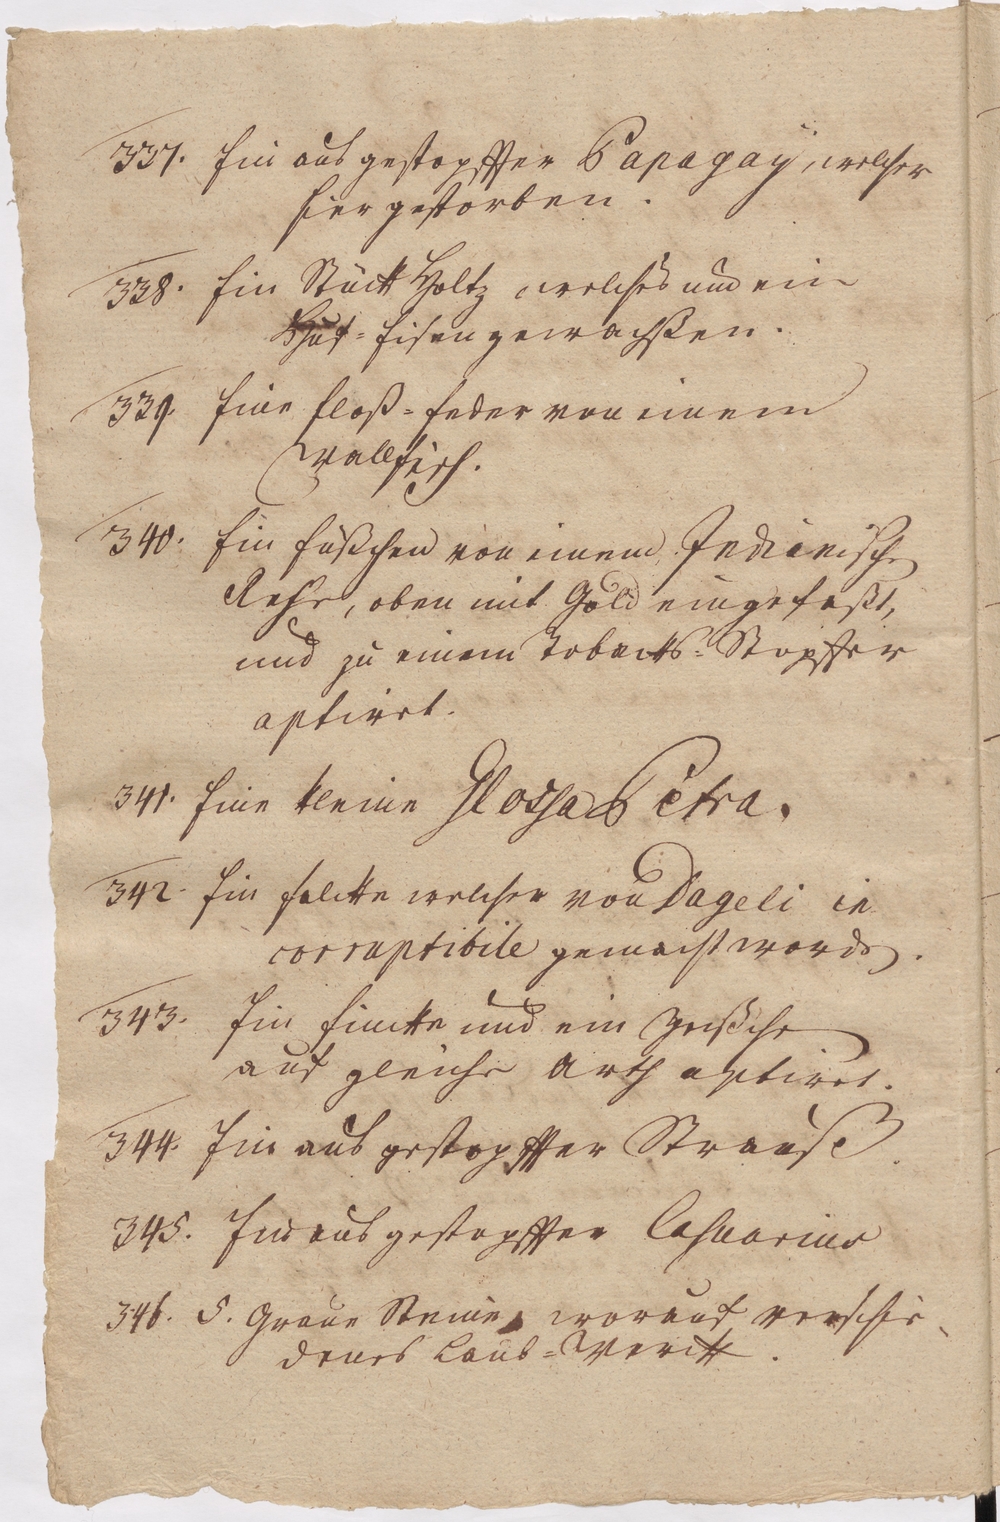 337. Ein ausgestopffter Papagaÿ, welcher
hier gestorben.
338. Ein Stück Holtz welches um ein
Huf=Eisen gewachßen.
339. Eine Floß=Feder von einem
Wallfisch.
340. Ein Füßchen von einem Indianische
Rehe, oben mit Gold eingefaßt,
und zu einem Tobacks=Stopffer
aptiret.
341. Eine kleine Glossa Petra.
342. Ein Falcke welcher von Dageli in
corruptibile gemacht worden.
343. Ein Fincke und ein Zeißche
auf gleiche Arth aptiret.
344. Ein ausgestopffter Strauß.
345. Ein ausgestopffter Casuarius
346. 5. Graue Steine, worauf verschie-
denes Laub=Werck.